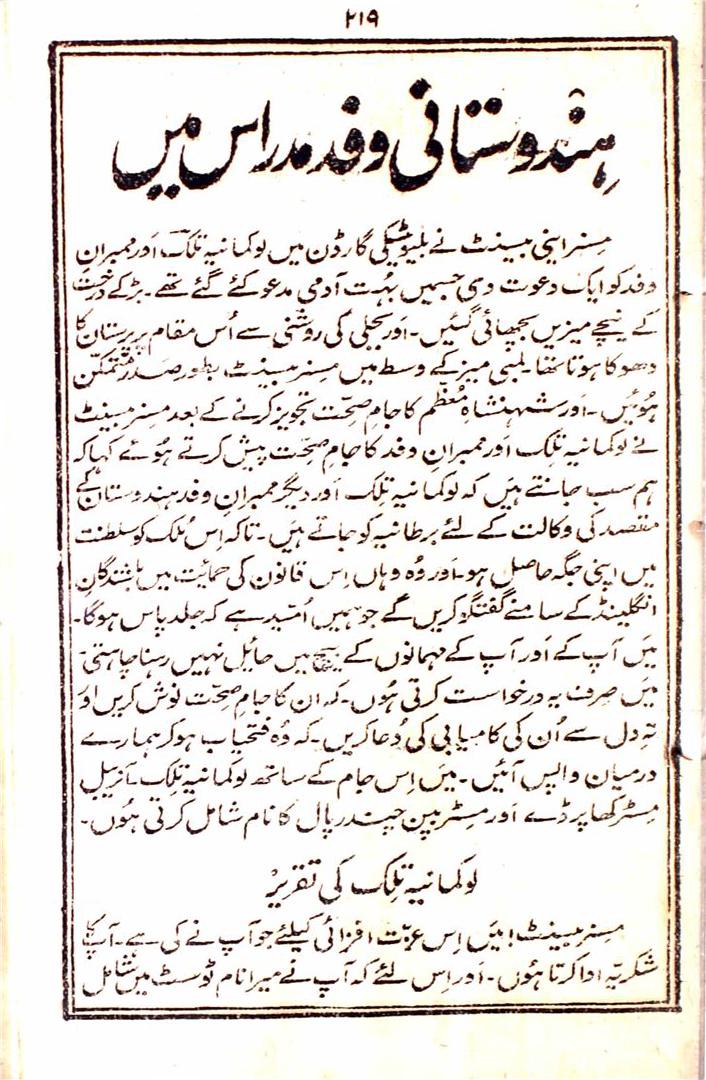 ۲۱۹
ہندوستانی وفد مدراس میں
مسنر اینی بیسنٹ نے بلیوٹیکی گارڈن میں لوکمانیہ تِلک اَور ممبرانِ
وفد کو ایک دعوت دی جسمیں بہُت آدمی مدعو کئے گئے تھے۔ بڑکے درخت
کے نیچے میزیں بچھائی گئیں۔ اَور بجلی کی روشنی سے اُس مقام پر پرستان کا
دھوکا ہوتا تھا۔ لمبی میز کے وسط میں مسنر بیسنٹ بطور صدر متمکّن
ہُوئیں۔ اَور شہنشاہِ مُعظّم کا جامِ صحّت تجویز کرنے کے بعد مسنر بیسنٹ
نے لوکمانیہ تِلک اَور ممبرانِ وفد کا جامِ صحّت پیش کرتے ہُوئے کہا کہ
ہم سب جانتے ہیَں کہ لوکمانیہ تِلک اَور دیگر ممبرانِ وفد ہندوستان کے
مقصد کی وکالت کے لئے برطانیہ کو جاتے ہیَں۔ تاکہ اِس مُلک کو سلطنت
میں اپنی جگہ حاصل ہو۔ اَور وُہ وہاں اِس قانون کی حمائیت میں باشندگانِ
انگلینڈ کے سامنے گفتگو کریں گے جو ہمیں اُمّید ہے کہ جلد پاس ہوگا۔
میَں آپ کے اَور آپ کے مہمانوں کے بیچ میں حائیل نہیں رہنا چاہتی۔
میَں صِرف یہ درخواست کرتی ہُوں۔ کہ ان کا جامِ صحّت نوش کریں اَور
تہِ دل سے اُن کی کامیابی کی دُعا کریں۔ کہ وُہ فتحیاب ہو کر ہمارے
درمیان واپس آئیں۔ میَں اِس جام کے ساتھ لوکمانیہ تِلک۔ آنریبل
مسٹر کھاپرڈے اَور مسٹر بپن چیندر پال کا نام شامل کرتی ہُوں۔
لوکمانیہ تِلک کی تقریر
مسنر بیسنٹ! میَں اِس عزّت افزائی کیلئے جو آپ نے کی ہے۔ آپ کا
شکریّہ ادا کرتا ہُوں۔ اَور اِس لئے کہ آپ نے میرا نام ٹوسٹ میں شامل